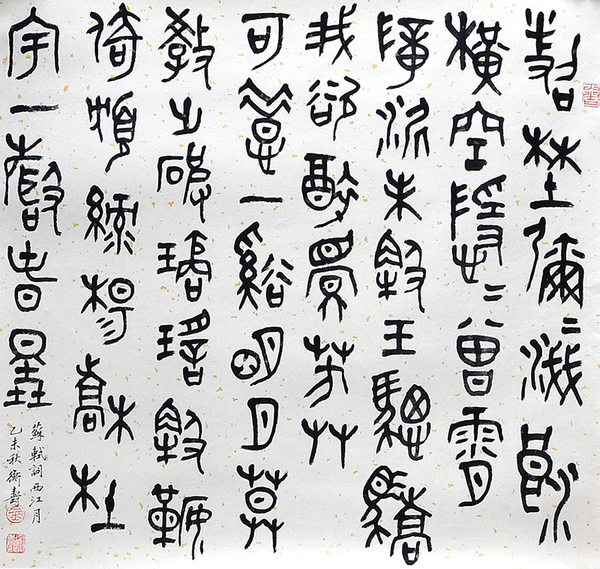 照野彌〻淺浪
橫空隱〻曾霄
障泥未解玉驄驕
我欲醉眠芳艸
可惜一谿明月莫
教踏碎瓊瑤解鞍
倚枕綠楊橋杜
宇一聲春曉
蘇軾詞西江月
乙未秋衛壽